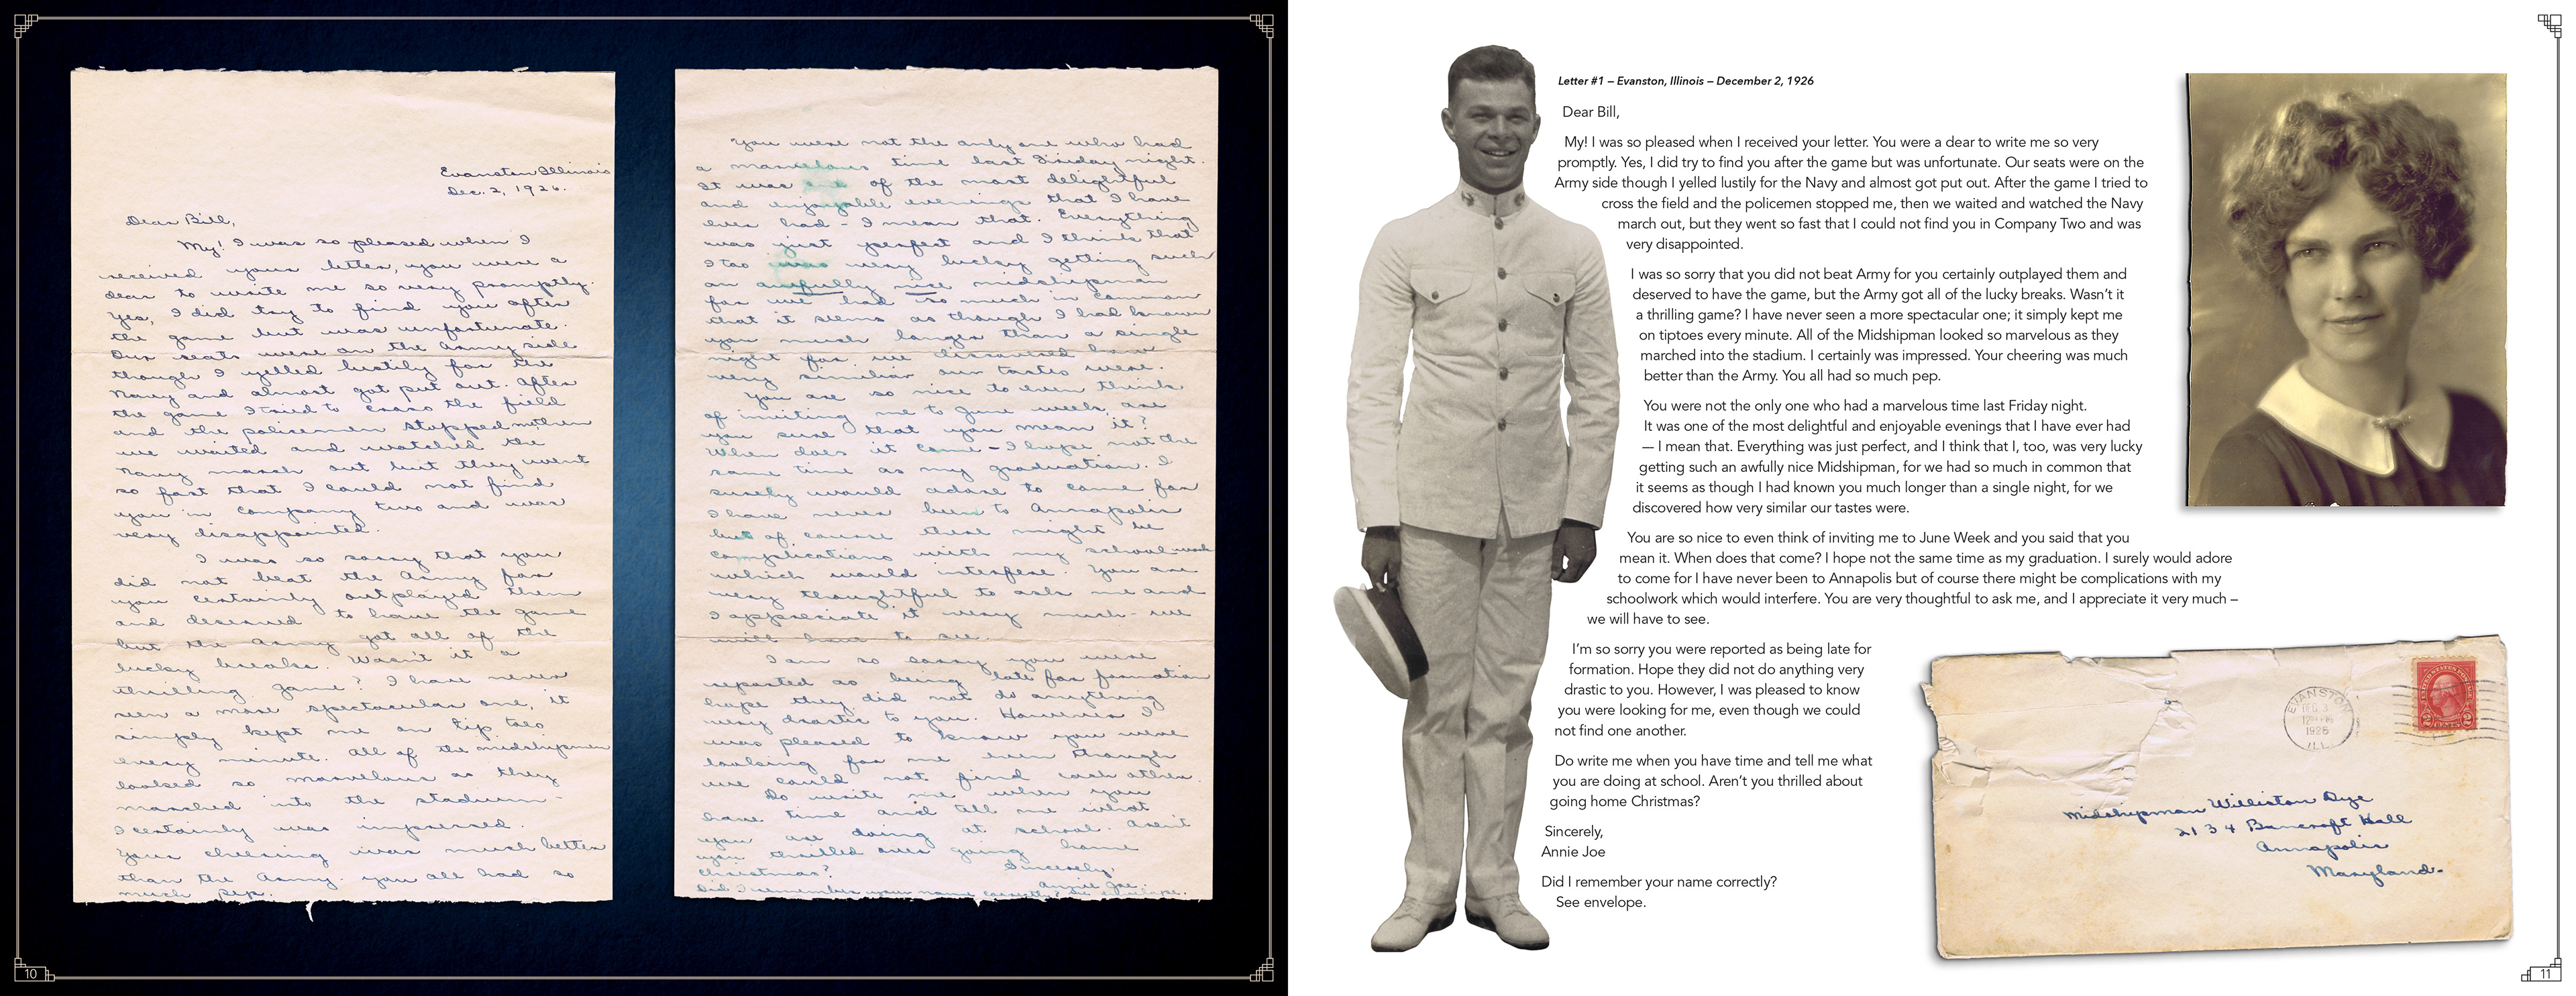 Evanston Illinois
Dec. 2, 1926.
Dear Bill,
My! I was so pleased when I
received your letter, you were a
dear to write me so very promptly.
Yes, I did try to find you after
the game but was unfortunate.
Our seats were on the Army side
though I yelled lustily for the
Navy and almost got put out. After
the game I tried to cross the field
and the policemen stopped me, then
we waited and watched the
Navy march out but they went
so fast that I could not find
you in Company two and was
very disappointed.
I was so sorry that you
did not beat the Army for
you certainly outplayed them
and deserved to have the game
but the Army got all of the
lucky breaks. Wasn't it a
thrilling game? I have never
seen a more spectacular one, it
simply kept me on tip toes
every minute. All of the midshipmen
looked so marvelous as they
marched into the stadium-
I certainly was impressed.
Your cheering was much better
than the Army. You all had so
much pep.
You were not the only one who had
a marvelous time last Friday night.
It was one of the most delightful
and enjoyable evenings that I have
ever had - I mean that. Everything
was just perfect and I think that
I too was very lucky getting such
an awfully nice midshipman
for we had so much in common
that it seems as though I had known
you much longer than a single
night for we discovered how
very similiar our tastes were.
You are so nice to even think
of inviting me to June week, are
you sure that you mean it?
When does it come - I hope not the
same time as my graduation. I
surely would adore to come for
I have never been to Annapolis
but of course there might be
complications with my school work
which would interfere. You are
very thoughtful to ask me and
I appreciate it very much - we
will have to see.
I am so sorry you were
reported as being late for formation
hope they did not do anything
very drastic to you. However I
was pleased to know you were
looking for me even though
we could not find each other.
Do write me when you
have time and tell me what
you are doing at school. Aren't
you thrilled over going home
Christmas?
Sincerely,
Annie Joe.
Did I remember your name correctly? See envelope.
10
Letter #1 – Evanston, Illinois – December 2, 1926
Dear Bill,
My! I was so pleased when I received your letter. You were a dear to write me so very
promptly. Yes, I did try to find you after the game but was unfortunate. Our seats were on the
Army side though I yelled lustily for the Navy and almost got put out. After the game I tried to
cross the field and the policemen stopped me, then we waited and watched the Navy
march out, but they went so fast that I could not find you in Company Two and was
very disappointed.
I was so sorry that you did not beat Army for you certainly outplayed them and
deserved to have the game, but the Army got all of the lucky breaks. Wasn't it
a thrilling game? I have never seen a more spectacular one; it simply kept me
on tiptoes every minute. All of the Midshipman looked so marvelous as they
marched into the stadium. I certainly was impressed. Your cheering was much
better than the Army. You all had so much pep.
You were not the only one who had a marvelous time last Friday night.
It was one of the most delightful and enjoyable evenings that I have ever had
— I mean that. Everything was just perfect, and I think that I, too, was very lucky
getting such an awfully nice Midshipman, for we had so much in common that
it seems as though I had known you much longer than a single night, for we
discovered how very similar our tastes were.
You are so nice to even think of inviting me to June Week and you said that you
mean it. When does that come? I hope not the same time as my graduation. I surely would adore
to come for I have never been to Annapolis but of course there might be complications with my
schoolwork which would interfere. You are very thoughtful to ask me, and I appreciate it very much –
we will have to see.
I'm so sorry you were reported as being late for
formation. Hope they did not do anything very
drastic to you. However, I was pleased to know
you were looking for me, even though we could
not find one another.
Do write me when you have time and tell me what
you are doing at school. Aren't you thrilled about
going home Christmas?
Sincerely,
Annie Joe
Did I remember your name correctly?
See envelope.
EVANSTON
DEC. 3
1926
ILL.
2 2
Midshipman Williston Dye
2134 Bancroft Hall
Annapolis
Maryland.
11